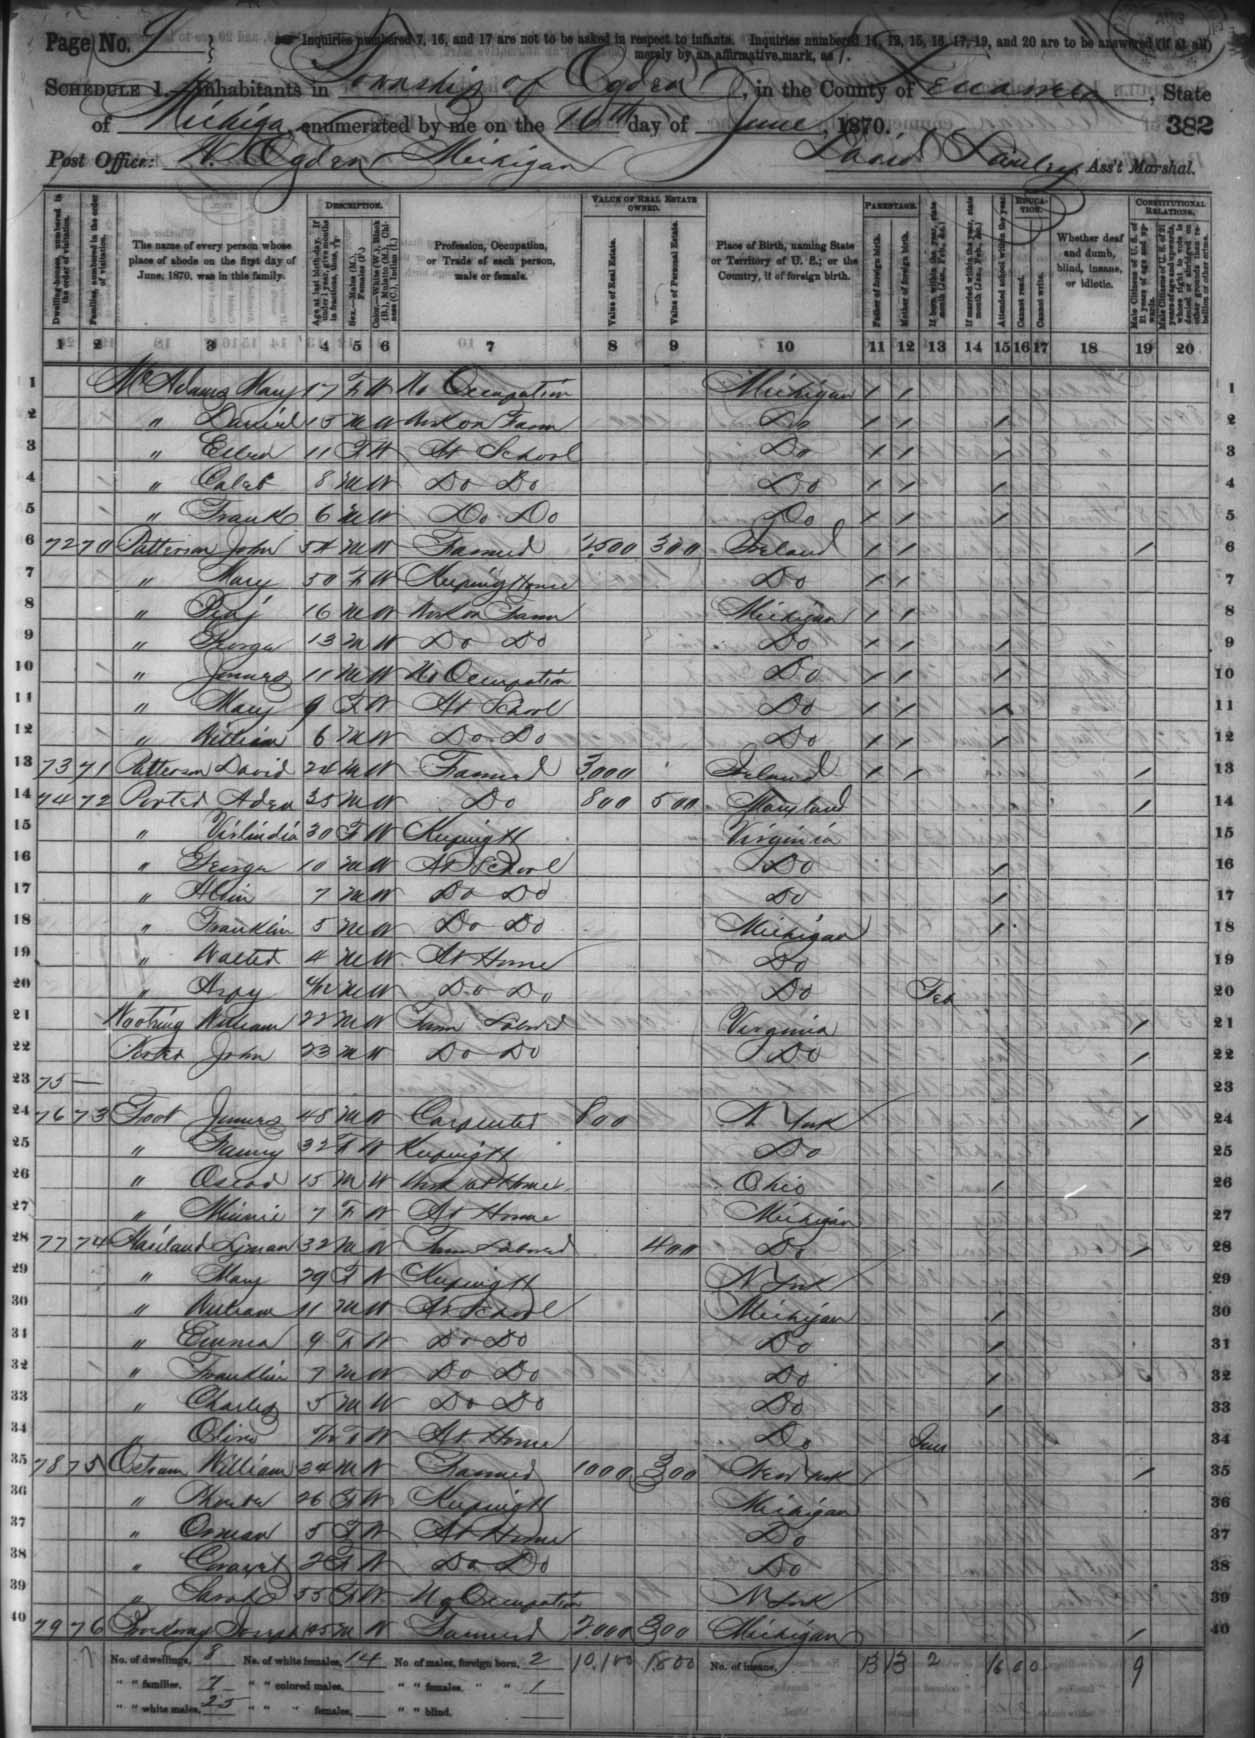 Page No. 9
Inquiries numbered 7, 16, and 17 are not to be asked in respect to infants. Inquiries numbered 11, 12, 15, 16, 17, 19, and 20 are to be answered (if at all)
merely by an affirmative mark, as /.
SCHEDULE 1.—Inhabitants in Township of Ogden, in the County of Lenawee, State
of Michigan, enumerated by me on the 16th day of June, 1870. 382
Post Office: W. Ogden Michigan David Ass't Marshal.
DESCRIPTION. VALUE OF REAL ESTATE OWNED. PARENTAGE. EDUCATION. CONSTITUTIONAL RELATIONS.
Dwelling-houses, numbered in the order of visitation.
Families, numbered in the order of visitation.
The name of every person whose place of abode on the first day of June, 1870, was in this family.
Age at last birth-day. If under 1 year, give months in fractions, thus, 3/12
Sex.—Males (M.), Females (F.)
Color.—White (W.), Black (B.), Mulatto (M.), Chinese (C.), Indian (I.)
Profession, Occupation, or Trade of each person, male or female.
Value of Real Estate.
Value of Personal Estate.
Place of Birth, naming State or Territory of U. S.; or the Country, if of foreign birth.
Father of foreign birth.
Mother of foreign birth.
If born within the year, state month (Jan., Feb., &c.)
If married within the year, state month (Jan., Feb., &c.)
Attended school within the year.
Cannot read.
Cannot write.
Whether deaf and dumb, blind, insane, or idiotic.
Male Citizens of U. S. of 21 years of age and upwards.
Male Citizens of U. S. of 21 years of age and upwards, whose right to vote is denied or abridged on other grounds than rebellion or other crime.
1 2 3 4 5 6 7 8 9 10 11 12 13 14 15 16 17 18 19 20
1 McAdams Mary 17 F W No Occupation Michigan / / 1
2 " Daniel 15 M W Work on Farm Do / / / 2
3 " Ellen 11 F W At School Do / / / 3
4 " Caleb 8 M W Do Do Do / / / 4
5 " Frank 6 M W Do Do Do / / / 5
6 72 70 Patterson John 54 M W Farmer 2500 300 Ireland / / / 6
7 " Mary 50 F W Keeping House Do / / 7
8 " Benj 16 M W Work on Farm Michigan / / 8
9 " George 13 M W Do Do Do / / / 9
10 " James 11 M W No Occupation Do / / / 10
11 " Mary 9 F W At School Do / / / 11
12 " William 6 M W Do Do Do / / / 12
13 73 71 Patterson David 24 M W Farmer 3000 Ireland / / / 13
14 74 72 Porter Aden 35 M W Do 800 500 Maryland / 14
15 " Virlindia 30 F W Keeping H Virginia 15
16 " George 10 M W At School Do / 16
17 " 7 M W Do Do Do / 17
18 " Franklin 5 M W Do Do Michigan / 18
19 " Walter 4 M W At Home Do 19
20 " 4/12 M W Do Do Do Feb 20
21 William 22 M W Farm Laborer Virginia / 21
22 Porter John 23 M W Do Do Do / 22
23 75 — 23
24 76 73 Foot James 48 M W Carpenter 800 N York / 24
25 " Fanny 32 F W Keeping H Do 25
26 " Oscar 15 M W Work at Home Ohio / 26
27 " Minnie 7 F W At Home Michigan 27
28 77 74 Lyman 32 M W Farm Laborer 400 Do / 28
29 " Mary 29 F W Keeping H N York 29
30 " William 11 M W At School Michigan / 30
31 " Emma 9 F W Do Do Do / 31
32 " Franklin 7 M W Do Do Do / 32
33 " Charles 5 M W Do Do Do / 33
34 " Olive F W At Home Do 34
35 78 75 Ostrum William 34 M W Farmer 1000 300 New York / 35
36 " Phoebe 26 F W Keeping H Michigan 36
37 " 5 F W At Home Do 37
38 " 2 F W Do Do Do 38
39 " Sarah 55 F W No Occupation N York 39
40 79 76 Joseph 45 M W Farmer 2000 300 Michigan / 40
No. of dwellings, 8 No. of white females, 14 No. of males, foreign born, 2 10,100 1800 No. of insane, 13 13 2 16 0 0 9
" " families, 7 " " colored males, " " females, " " 1
" " white males, 25 " " " females, " " blind,